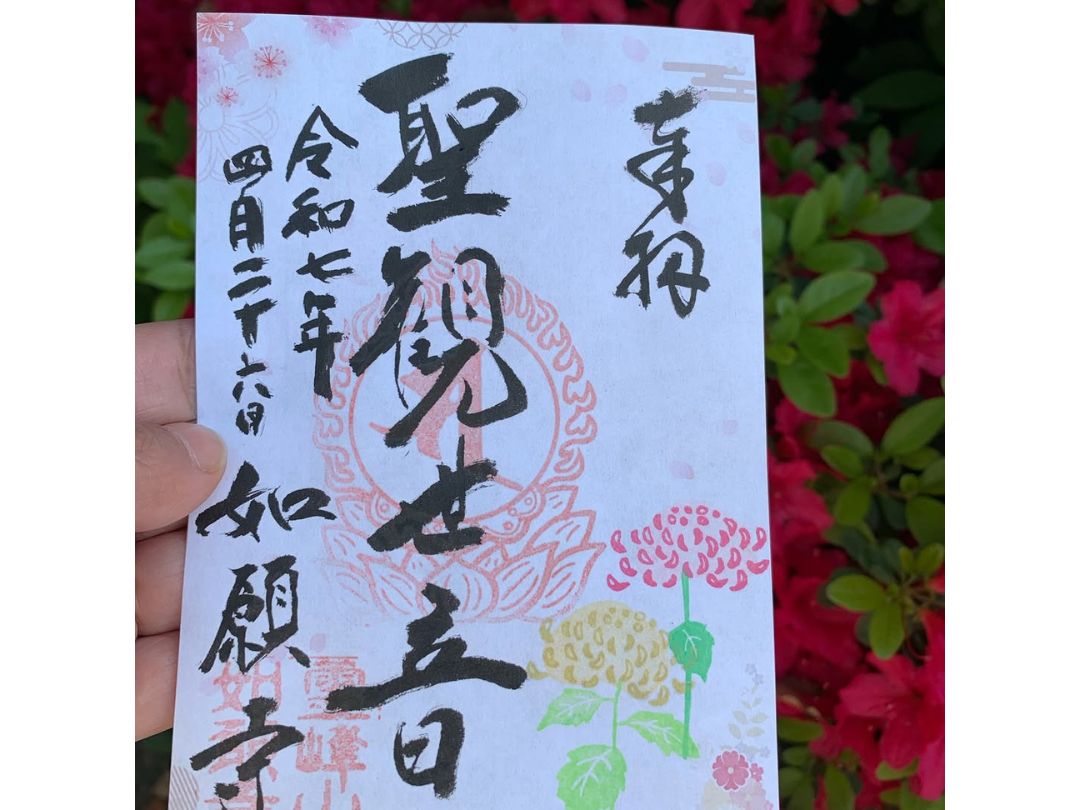 奉拝
聖観世音
令和七年
四月二十六日
如願寺
霊峰山